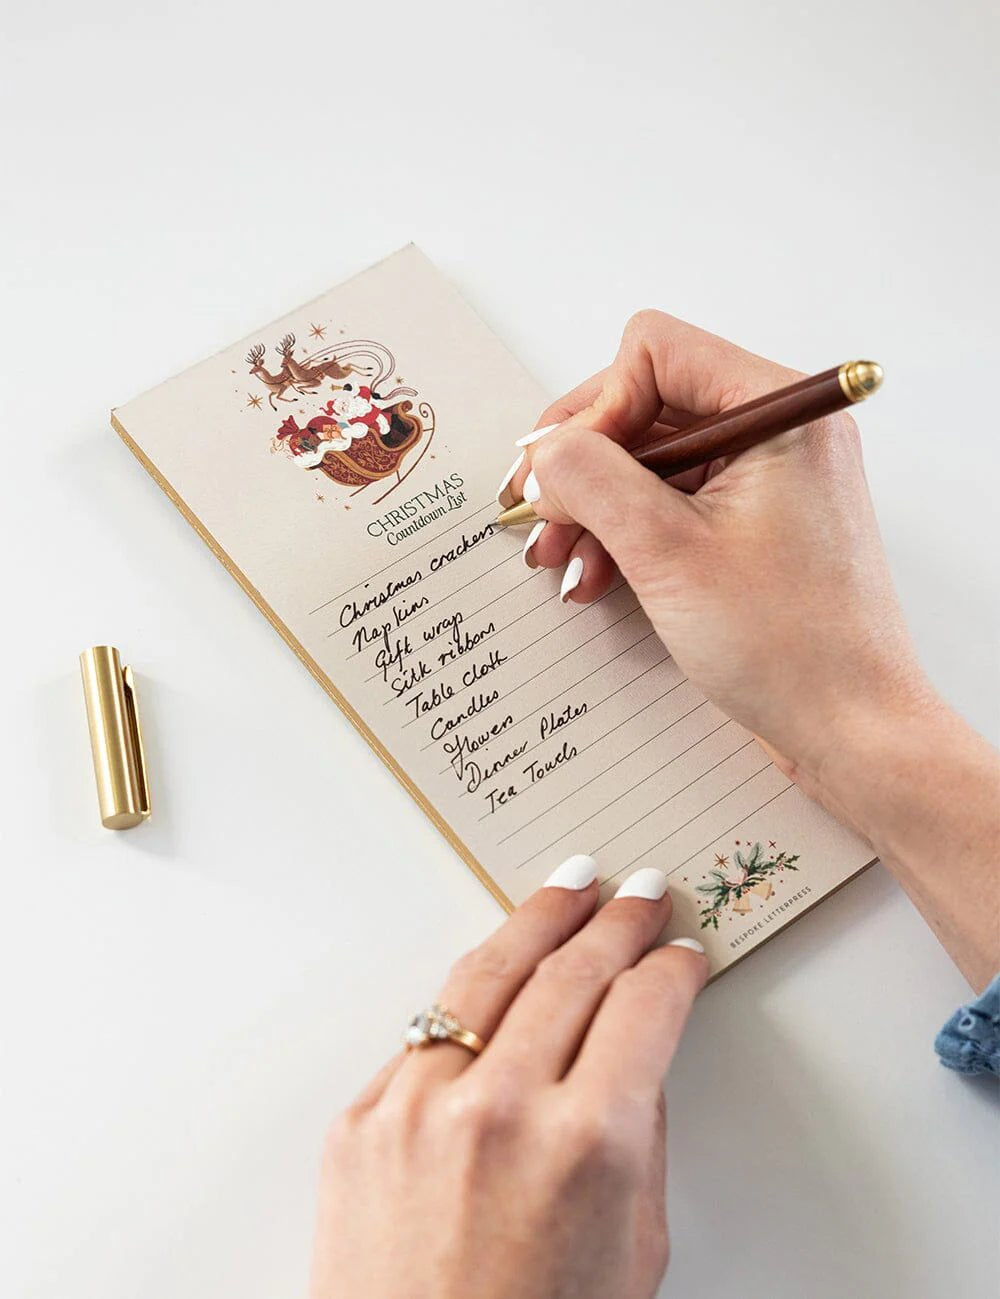 CHRISTMAS
Countdown List
Christmas crackers
Napkins
Gift wrap
Silk ribbons
Table cloth
Candles
Flowers
Dinner Plates
Tea Towels
BESPOKE LETTERPRESS